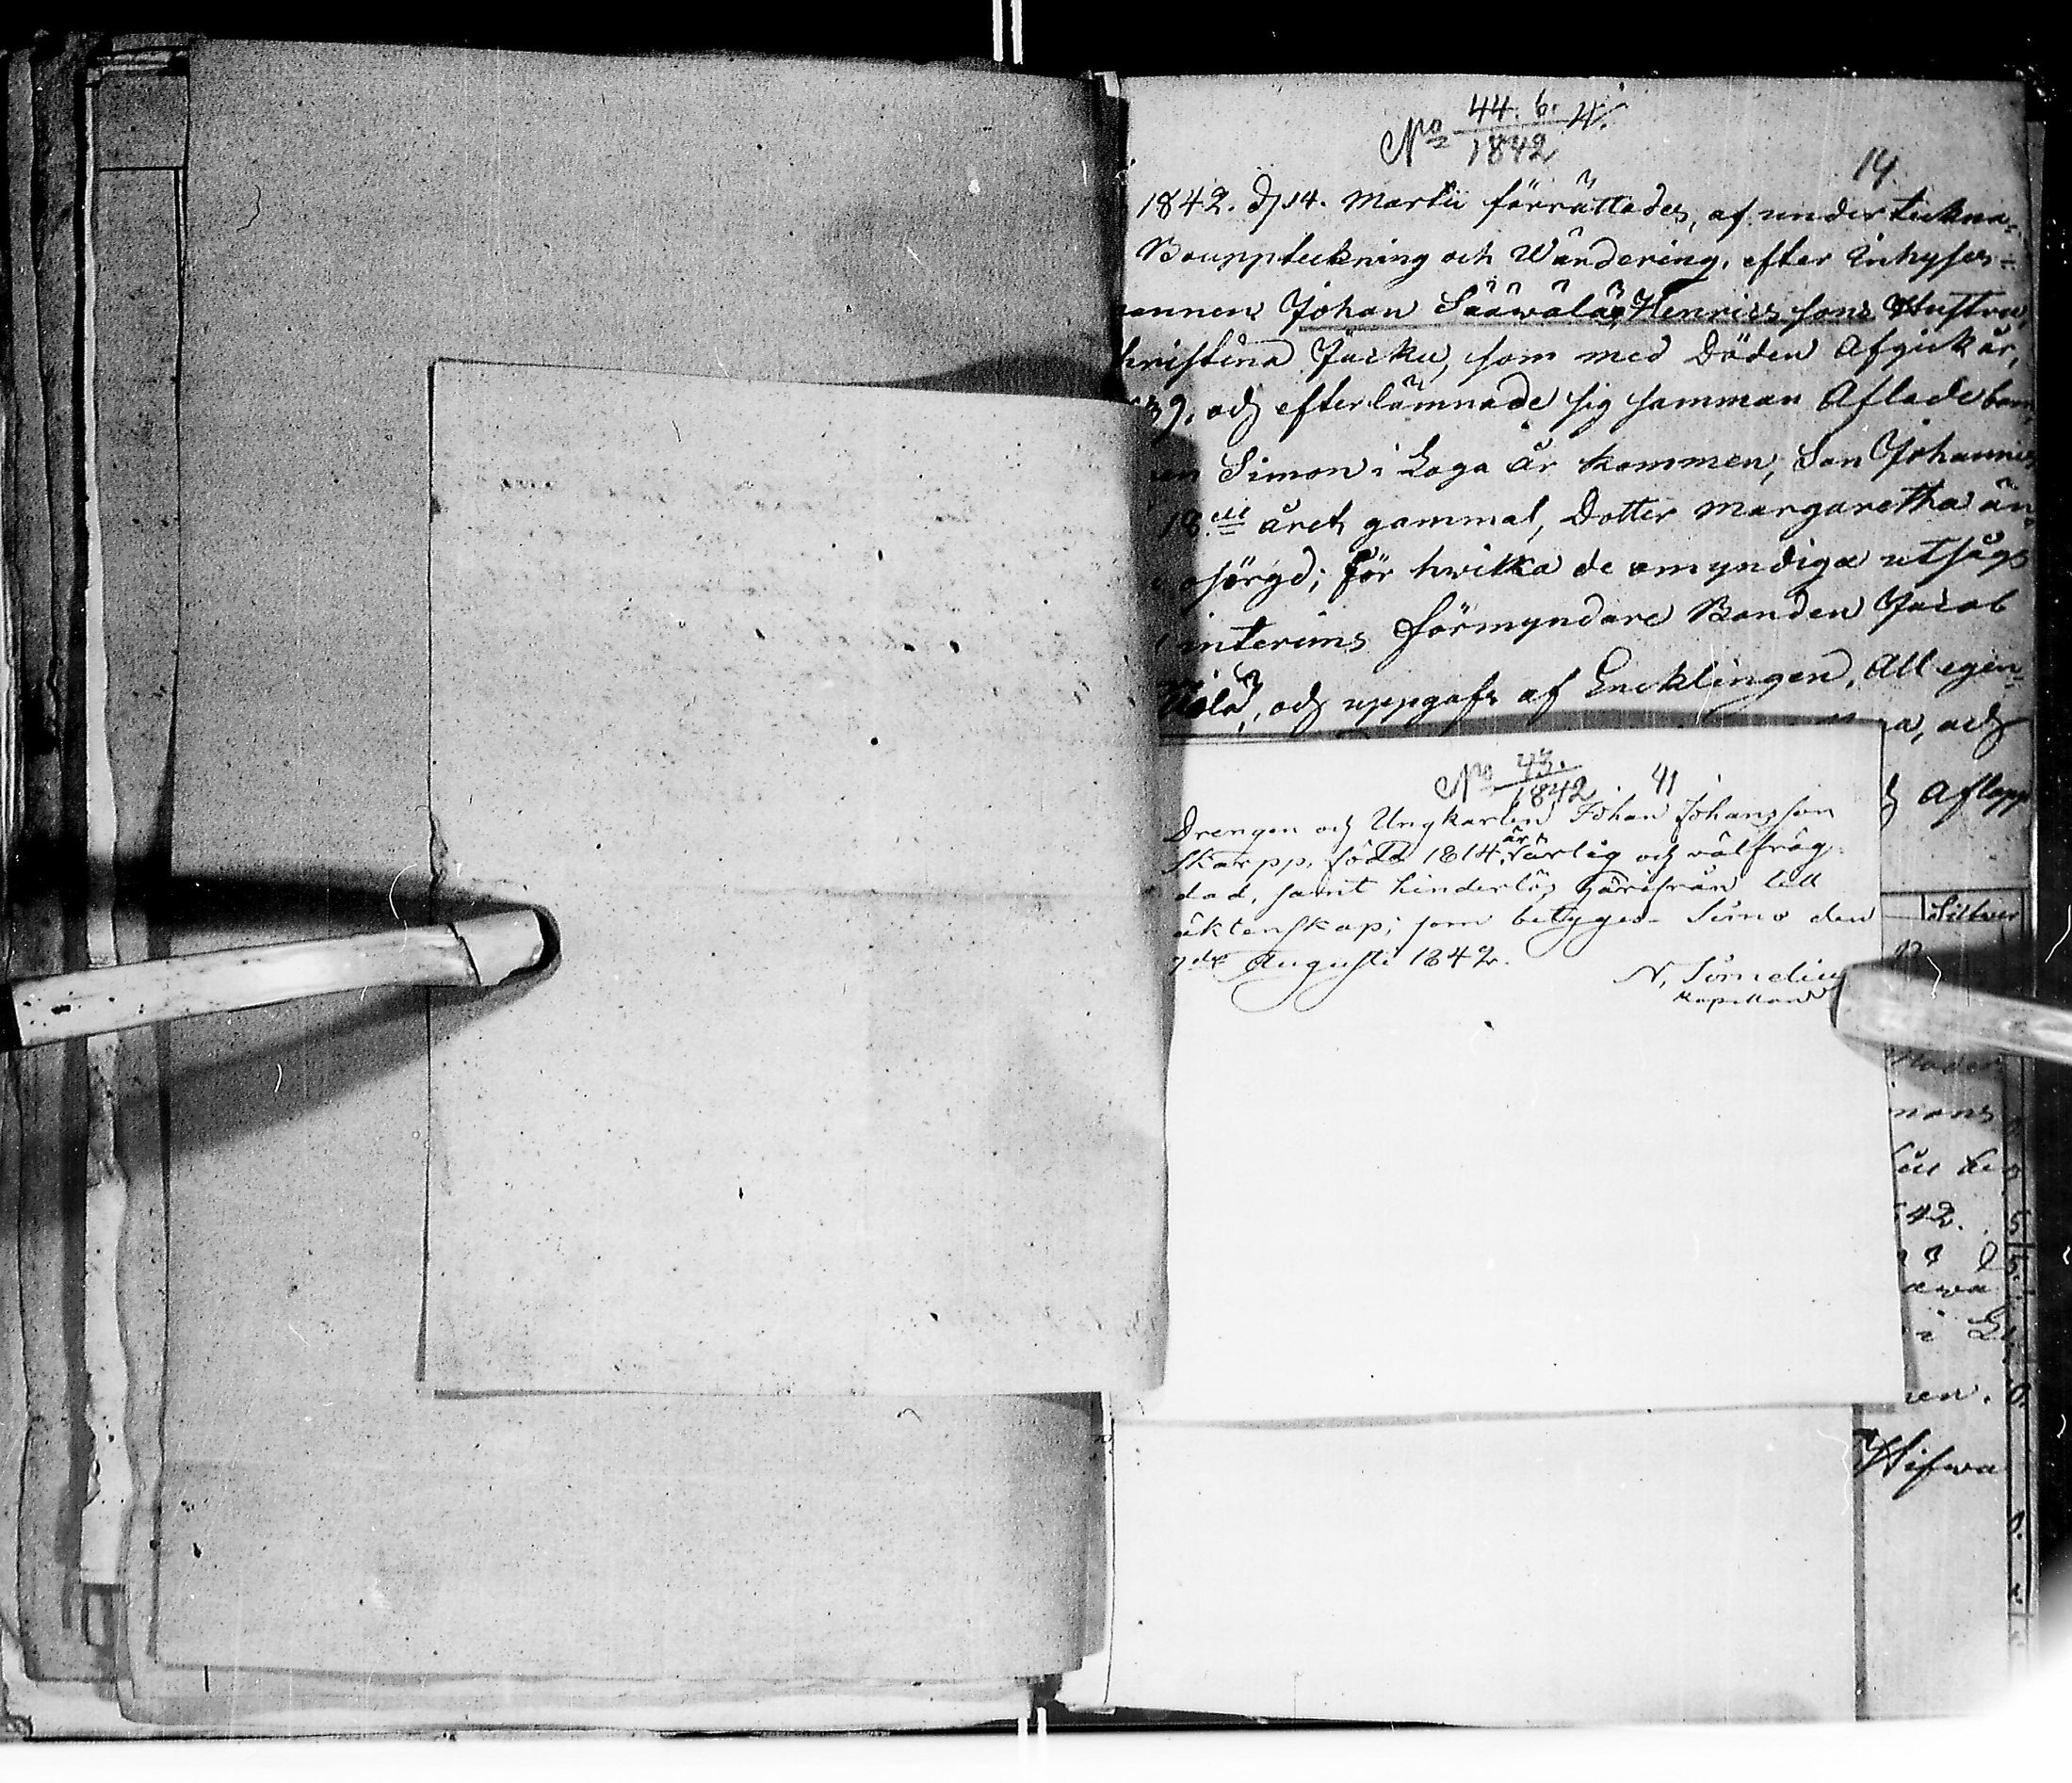 No 44. b. 4.
1842
14
1842. d. 14. Martii förrättades, af underteckna=
Bouppteckning och Wärdering, efter Inhyses=
mannens Johan Sääwälä Henricssons Hustru,
hristina Jacku, som med Döden Afgick år,
39, och efterlämnade sig samman Aflade barn,
en Simon i Laga år kommen, Son Johannis
18.de året gammal, Dotter Margaretha än=
osörgd; för hvilka de omyndiga utsågs
interims Förmyndare Bonden Jacob
och uppgafs af Encklingen, All egen=
a, och
Aflagg
No 43.
1842. 41
Drengen och Ungkarlen Johan Johansson
Skarpp, född 1814, är ärlig och välfräg=
dad, samt hinderlös härifrån till
äktenskap; som betygas. Simo den
7de Augusti 1842.
N. Simelius
Kapellan
Silfver
mans
42. 5
5.
awa
i
en. 0.
Hifwa